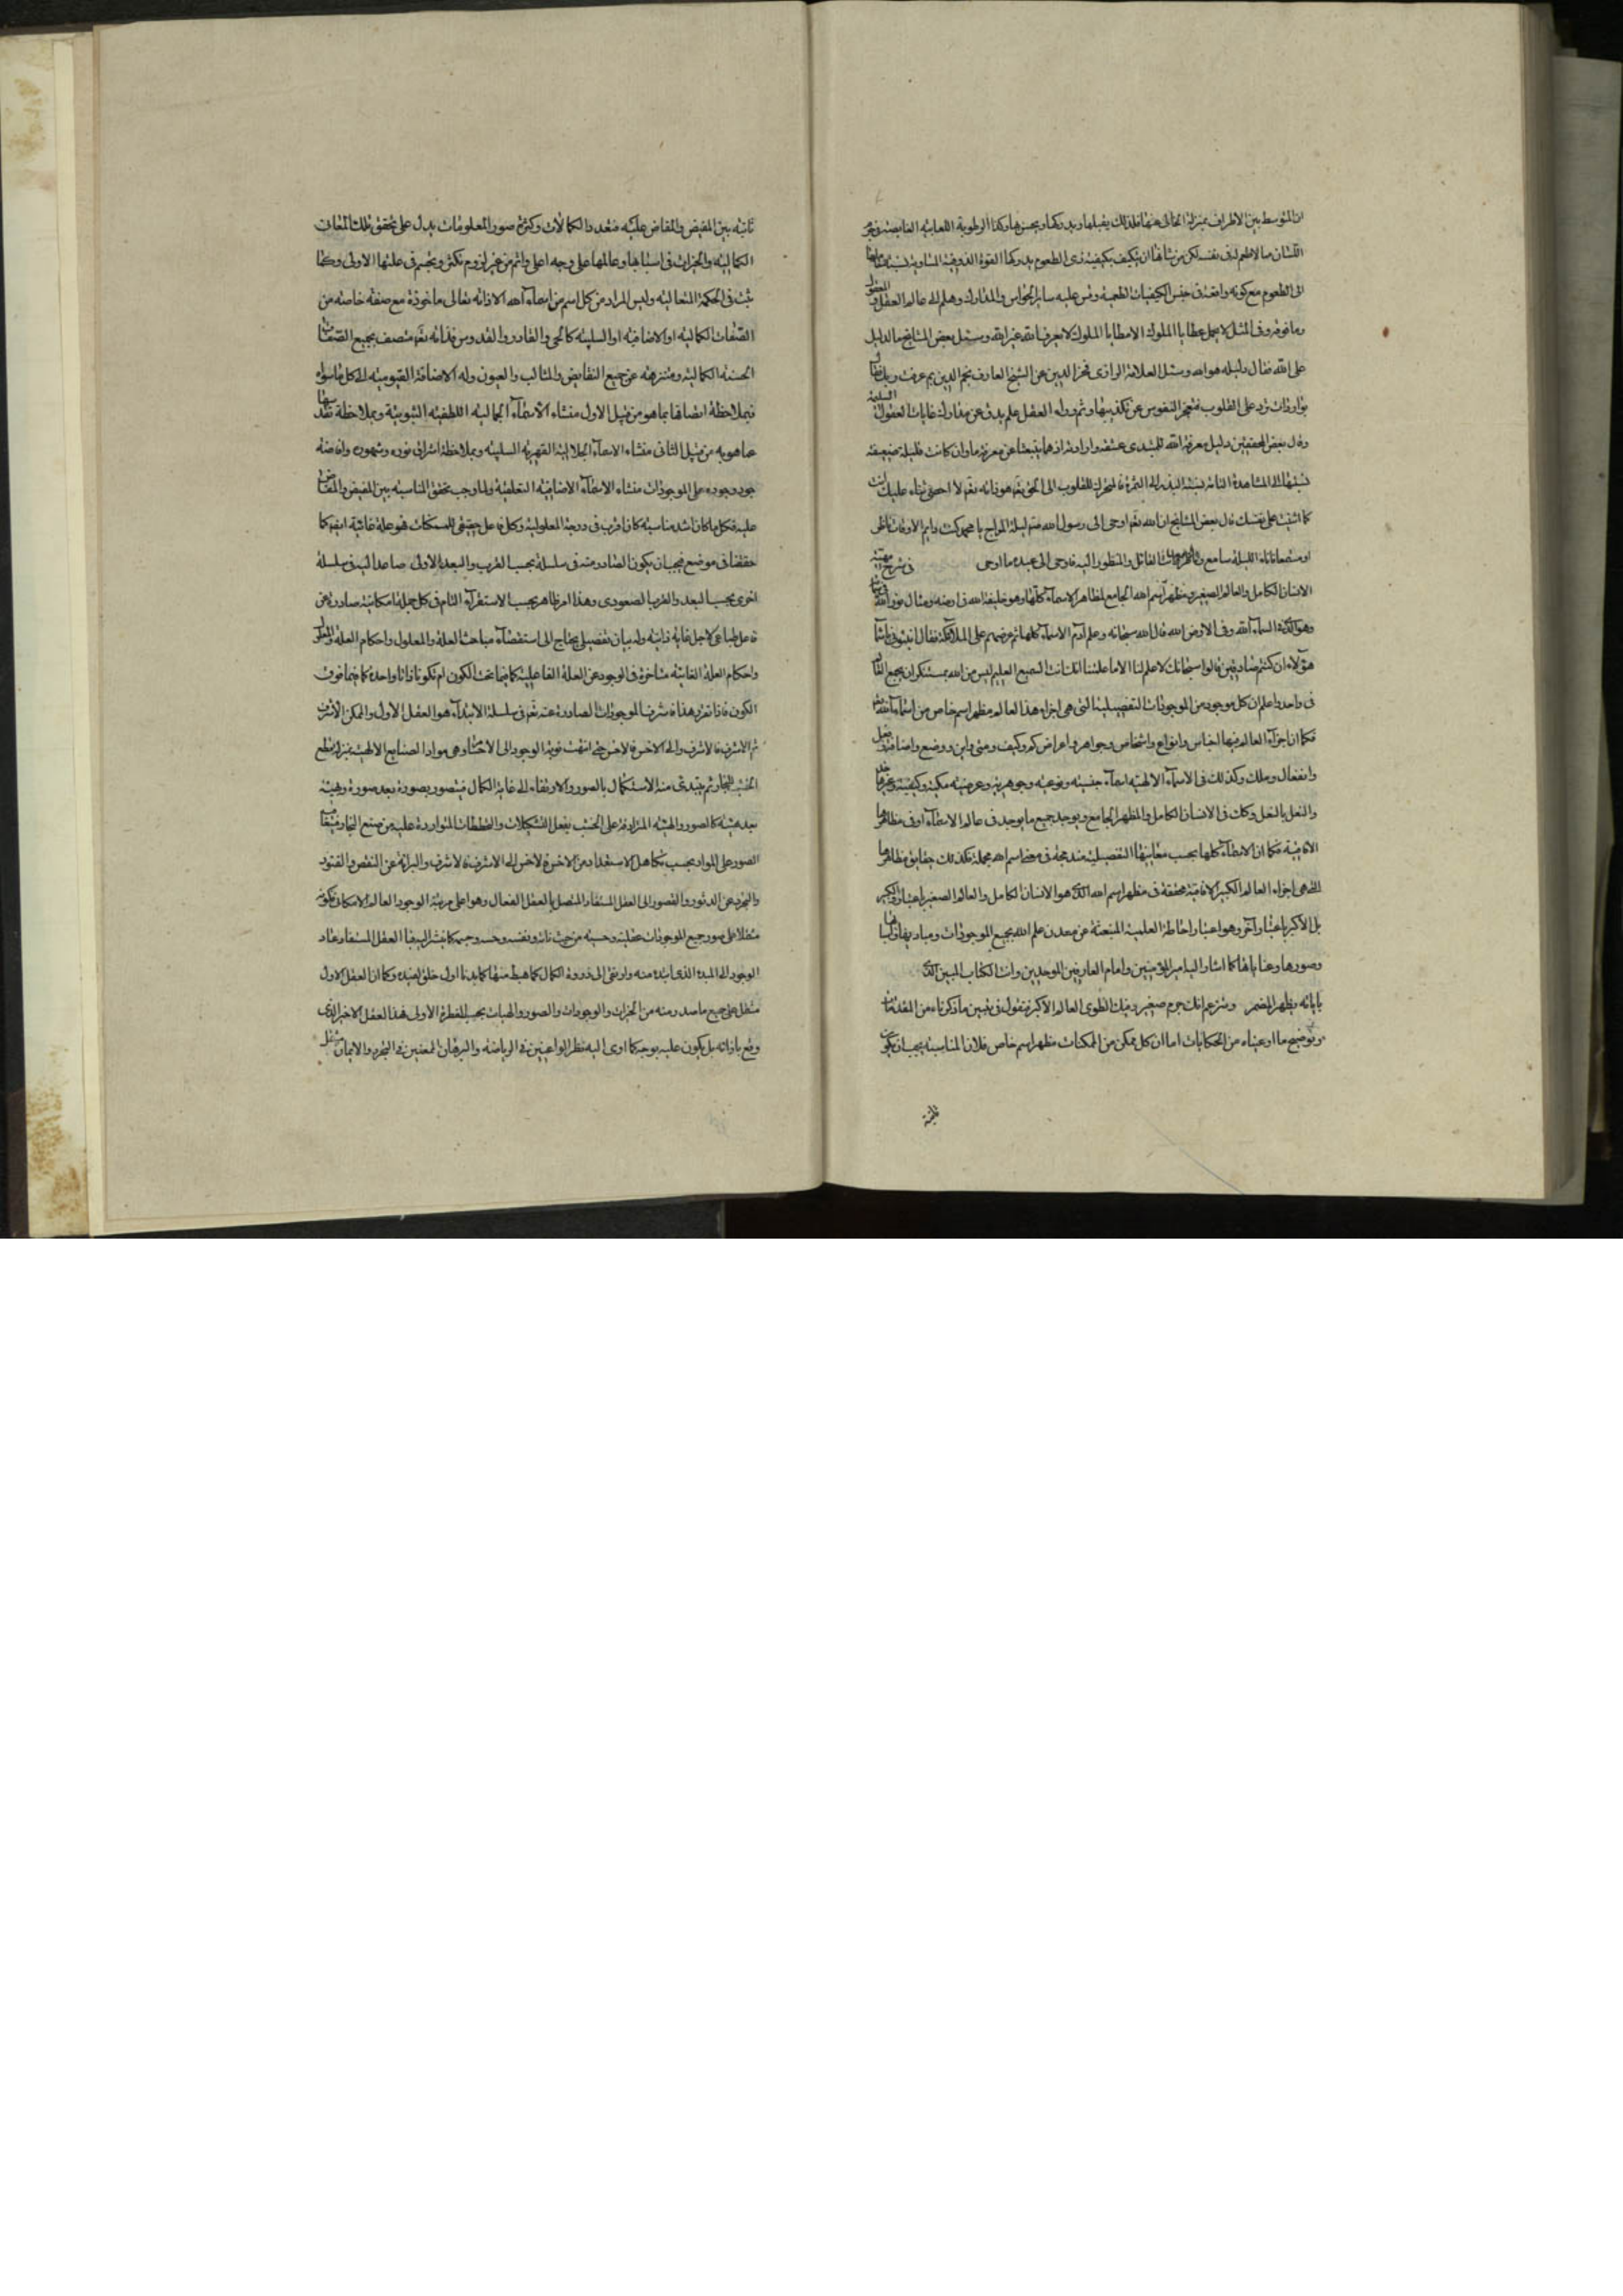 ان المتوسط بين الاطراف بمنزلة الخالى عنها فلذلك يقبلها ويدركها ويحس بها وكذا الرطوبة اللعابيه الفايضه فى جرم
اللسان مما لا طعم له فى نفسه لكن من شانها ان يتكيف بكيفية ذى الطعوم يدركها القوة الذوقية المتساوية نسبة محلها
الى الطعوم مع كونه واقعة فى جنس الكيفيات الطعمية وقس عليه ساير الحواس والمدارك وهلم الى عالم العقل والمعقول
وما فوقه وفى المثل لا يحمل عطايا الملوك الا مطايا الملوك لا يعرف الله غير الله وسئل بعض المشايخ ما الدليل
على الله فقال دليله هو الله وسئل العلامة الرازى فخر الدين عن الشيخ العارف نجم الدين بم عرفت ربك فقال
بواردات ترد على القلوب فتعجز النفوس عن تكذيبها وثم وراء العقل علم يدق عن مدارك غايات العقول السليمة
وقال بعض المحققين دليل معرفة الله للمبتدى عشقه وارادته اذ هما ينبعثان عن معرفة ما وان كانت قليلة ضعيفة
نسبتها الى المشاهدة التامه نسبة البذر الى الثمرة فالمحرك للقلوب الى الحق تعم هو ذاته تعم لا احصى ثناء عليك انت
كما اثنيت على نفسك قال بعض المشايخ ان الله تعم اوحى الى رسول الله صم ليلة المعراج يا محمد كنت دايم الاوقات ناظر
او مستمعا فاناه الليلة سامع وانت القائل والمنظور اليه فاوحى الى عبده ما اوحى فى شرح مهية
الانسان الكامل والعالم الصغير ومظهر اسم الله الجامع لمظاهر الاسماء كلها وهو خليفة الله فى ارضه ومثال نور الله فى سمائه
وهو الذى فى السماء اله وفى الارض اله قال الله سبحانه وعلم آدم الاسماء كلها ثم عرضهم على الملائكة فقال انبئونى باسماء
هؤلاء ان كنتم صادقين قالوا سبحانك لا علم لنا الا ما علمتنا انك انت السميع العليم ليس من الله بمستنكر ان يجمع العالم
فى واحد واعلم ان كل موجود من الموجودات التفصيلية التى هى اجزاء هذا العالم مظهر اسم خاص من اسماء الله
فكما ان اجزاء العالم فيها اجناس وانواع واشخاص وجواهر واعراض كم وكيف ومتى واين ووضع واضافة وفعل
وانفعال وملك وكذلك فى الاسماء الالهيه اسماء جنسيه ونوعيه وجوهرية وعرضيه مكية وكيفية وغيرها
والنعل بالنعل وكذلك فى الانسان الكامل والمظهر الجامع ويوجد جميع ما يوجد فى عالم الاسماء او فى مظاهرها
الافاقية فكما ان الاسماء كلها بحسب معانيها التفصيلية مندمجة فى معنى اسم الله مجملة فكذلك حقايق مظاهرها
التى هى اجزاء العالم الكبير الافاقية متحققة فى مظهر اسم الله الذى هو الانسان الكامل والعالم الصغير باعتبار والكبير
بل الاكبر باعتبار آخر وهو اعتبار احاطة العلمية المنبعثة عن معدن علم الله بجميع الموجودات ومباديها واسبابها
وصورها وغاياتها كما اشار اليه امير المؤمنين وامام العارفين الموحدين وانت الكتاب المبين الذى
باياته يظهر المضمر وتزعم انك جرم صغير وفيك انطوى العالم الاكبر فنقول فى تبيين ما ذكرناه من المقدمات
وتوضيح ما ادعيناه من الحكايات اما ان كل ممكن من الممكنات مظهر اسم خاص فلان المناسبة يجب ان يكون
ثابتة
ثابته بين المفيض والمفاض عليه فتعدد الكمالات وكثرة صور المعلومات يدل على تحقق تلك المعانى
الكماليه والخيرات فى اسبابها وعالمها على وجه اعلى واتم من غير لزوم تكثر وتجسم فى علتها الاولى وكما
ثبت فى الحكمة المتعاليه وليس المراد من كل اسم من اسماء الله الا ذاته تعالى ماخوذة مع صفة خاصه من
الصفات الكماليه او الاضافيه او السلبيه كالحى والقادر والقدوس فذاته تعم متصف بجميع الصفات
الحسنه الكمالية ومتنزهه عن جميع النقايص والمثالب والعيوب وله الاضافة القيوميه الى كل ما سواه
فبملاحظة اتصافها بما هو من قبيل الاول منشاء الاسماء الجماليه اللطفيه الثبوتية وبملاحظة تقدسها
عما هو به من قبيل الثانى منشاء الاسماء الجلاليه القهريه السلبيه وبملاحظة اشراق نوره وشهوده وافاضه
جود وجوده على الموجودات منشاء الاسماء الاضافيه التعلقية ولما وجب تحقق المناسبه بين المفيض والمفاض
عليه فكل ما كان اشد مناسبة كان اقرب فى درجة المعلولية وكل فاعل حقيقى للممكنات فهو علة غائية ايضا كما
حققنا فى موضع فيجب ان يكون الصادر منه فى سلسلة بحسب القرب والبعد الاولى صاعدا اليه فى سلسلة
اخرى بحسب البعد والقرب الصعودى وهذا امر ظاهر بحسب الاستقراء التام فى كل جملة امكانية صادرة عن
فاعل طباعى لاجل غاية ذاتية وله بيان تفصيلى يحتاج الى استقصاء مباحث العلة والمعلول واحكام العلة والمعلول
واحكام العلة الغائيه متاخرة فى الوجود عن العلة الفاعلية كما فيما تحت الكون ام تكونا ذاتا واحدة كما فيما فوق
الكون فاذا تقرر هذا فاشرف الموجودات الصادرة عنه تعم فى سلسلة الابتداء هو العقل الاول والممكن الاشرف
ثم الاشرف فالاشرف والى الاخس فالاخس حتى انتهت نوبة الوجود الى الاخس وهى مواد الصنايع الالهية بمنزلة قطع
الخشب للنجار ثم يبتدى منه الاستكمال بالصور والارتقاء الى غاية الكمال فيتصور بصورة بعد صورة وهيئة
بعد هيئة كالصور والهيئه المترادفة على الخشب بفعل التشكيلات والتخطيطات المتواردة عليه من صنع النجار فيتعاقب
الصور على المواد بحسب تكامل الاستعداد من الاخس فالاخس الى الاشرف فالاشرف والبراءة عن النقص والقيود
والتجرد عن الدثور والقصور الى العقل المستفاد المتصل بالعقل الفعال وهو اعلى مرتبة الوجود العالم الامكانى لكونه
مشتملا على صور جميع الموجودات عقلية وحسيه من حيث ذاته ونفسه وحسه وجسمه كما يشير اليه فيها العقل المستفاد عاد
الوجود الى المبدء الذى ابتدء منه وارتقى الى ذروة الكمال كما هبط منها كما بدانا اول خلق نعيده وكما ان العقل الاول
مشتمل على جميع ما صدر منه من الخيرات والوجودات والصور والهيات بحسب الفطرة الاولى فهذا العقل الاخير الذى
وقع بازائه بل يكون عليه بوجه كما ادى اليه نظر الواعيين فى الرياضه والبرهان الممعنين فى التجرد والايمان